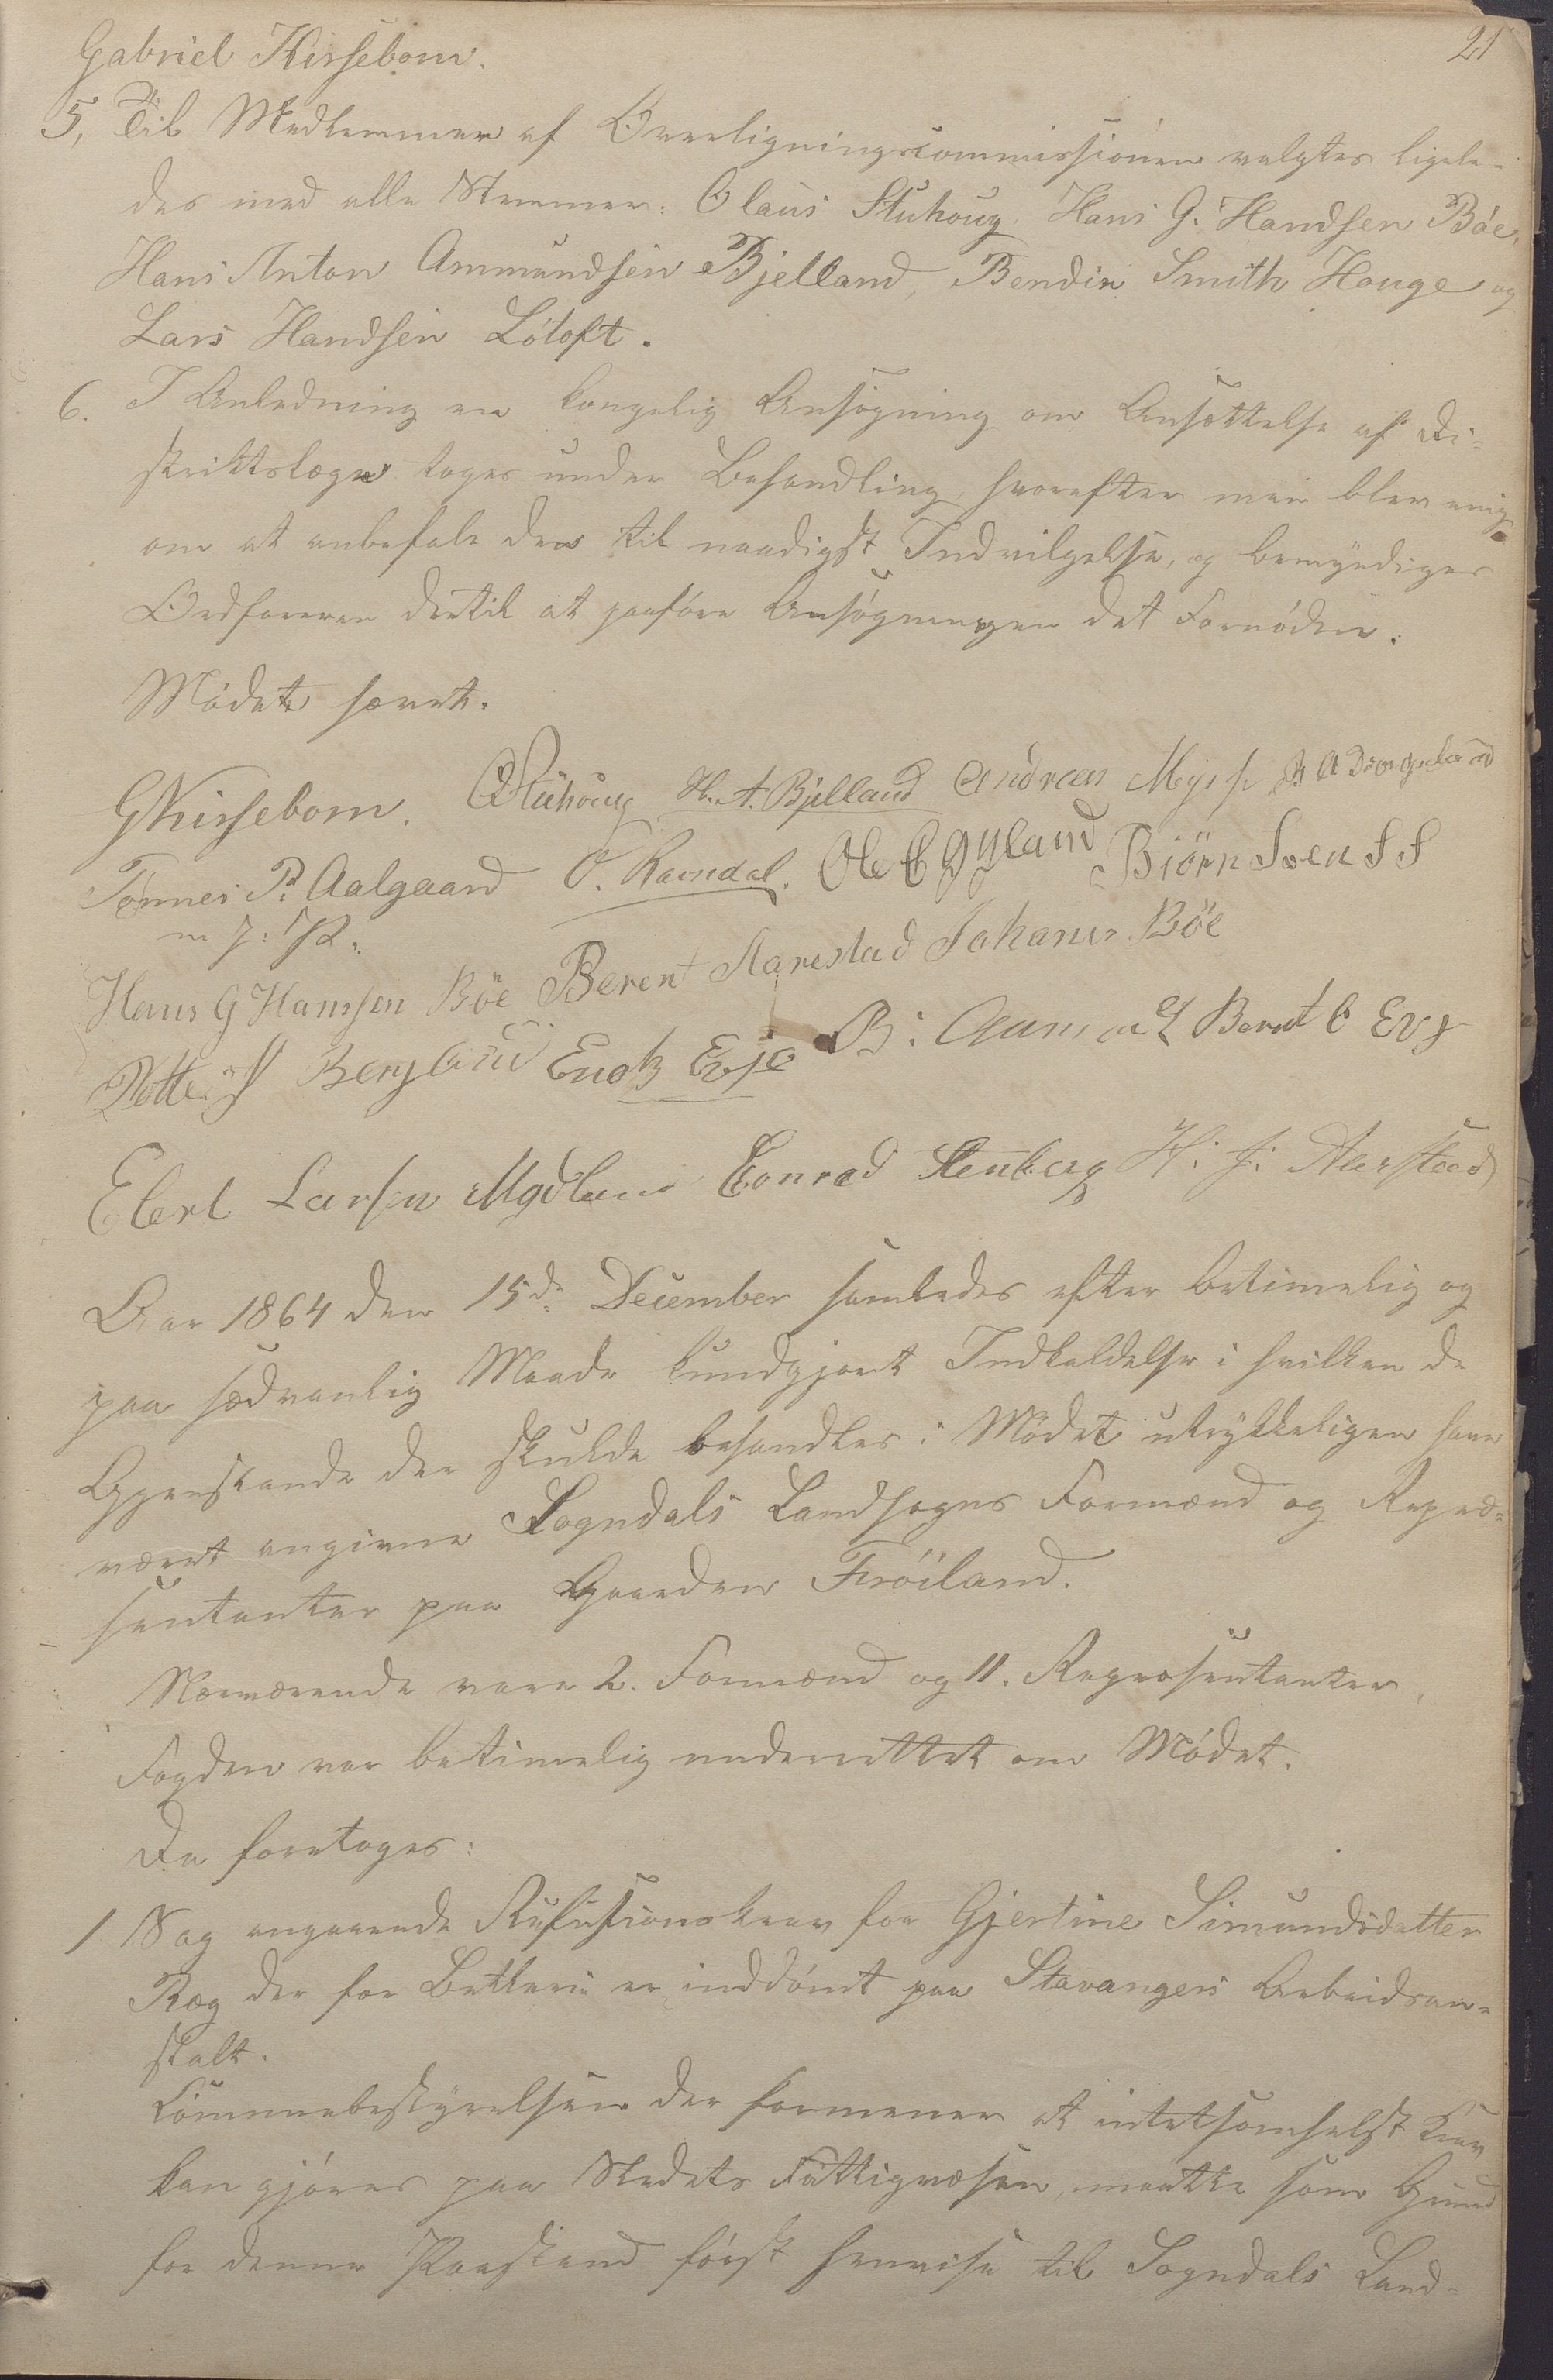 21
Gabriel Kirsebom.
5, Til Medlemmer af Overligningscommissionen valgtes ligele-
des med alle Stemmer: Olaus Stuhoug, Hans G. Handsen Böe,
Hans Anton Ammundsen Bjelland, Bendix Smith Houge og
Lars Handsen Lötoft.
6. I Anledning en kongelig Ansögning om Ansættelse af Di-
striktslæge toges under Behandling, hvorefter man blev enig
om at anbefale den til naadigst Indvilgelse, og bemyndiges
Ordföreren dertil at paaföre Ansögningen det Fornödne.
Mödet hævet.
GKirsebom. OStuhoug H. A. Bjelland Andreas Mysse
Tönnes P. Aalgaard O. Ravndal. Ole C Gyland Biörn Svens S
m. f. P.
Hans G Hansen Böe Berent Aarestad Johanes Böe
Petter Bergland Enok Evje B: Aamodt Bernt C Evj
Elert Larsen Mydland Conrad Stenberg H: J: Aarstad
Aar 1864 den 15de December samledes efter betimelig og
paa sædvanlig Maade kundgjort Indkaldelse i hvilken de
Gjenstande der skulde behandles i Mödet utrykkeligen have
været angivne Sogndals Landsogns Formænd og Repræ-
sentanter paa Gaarden Fröiland.
Nærværende vare 2. Formænd og 11. Repræsentanter.
Fogden var betimelig underrettet om Mödet.
Da foretoges:
1 Sag angaaende Refusionskrav for Gjertine Simundsdatter
Ræg der for Betleri er inddömt paa Stavangers Arbeidsan-
stalt.
Communebestyrelsen der formener at intetsomhelst Krav
kan gjöres paa Stedets Fattigvæsen, maatte som Grund
for denne Paastand först henvise til Sogndals Land-